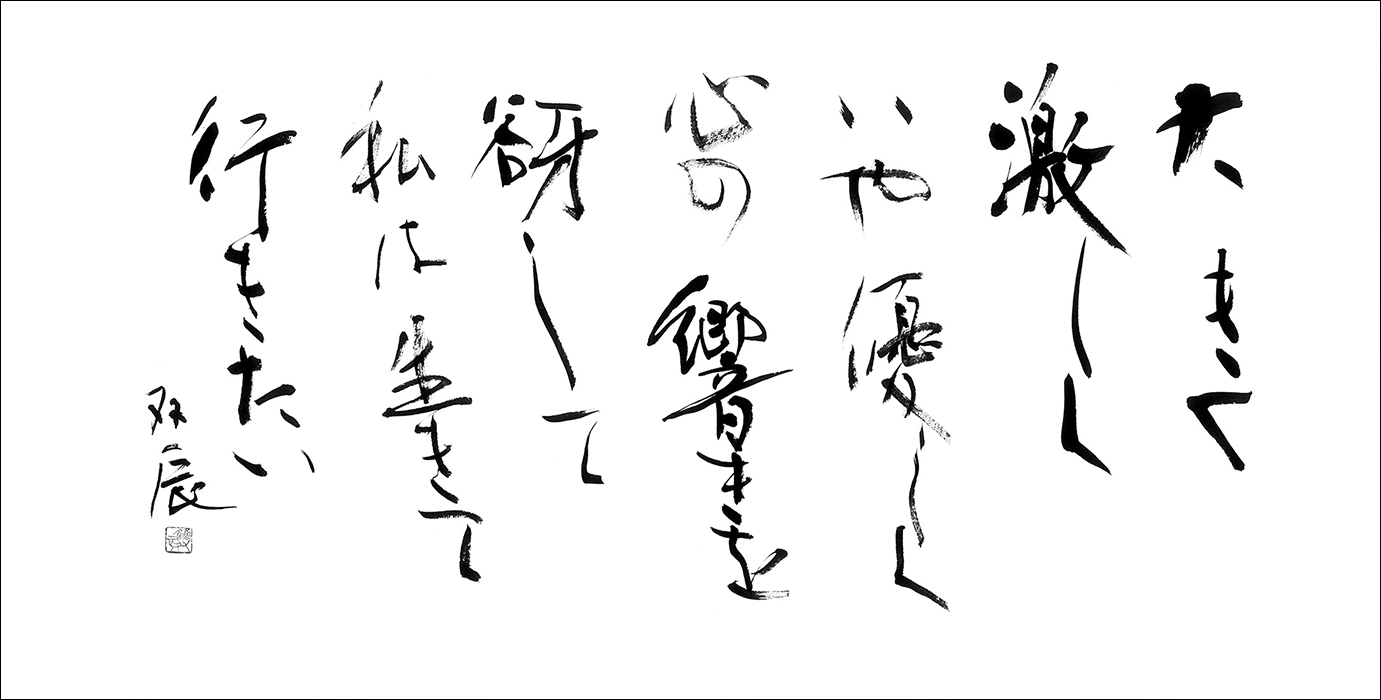 大きく
激しく
いや優しく
心の響きを
谺して
私は生きて
行きたい
双辰